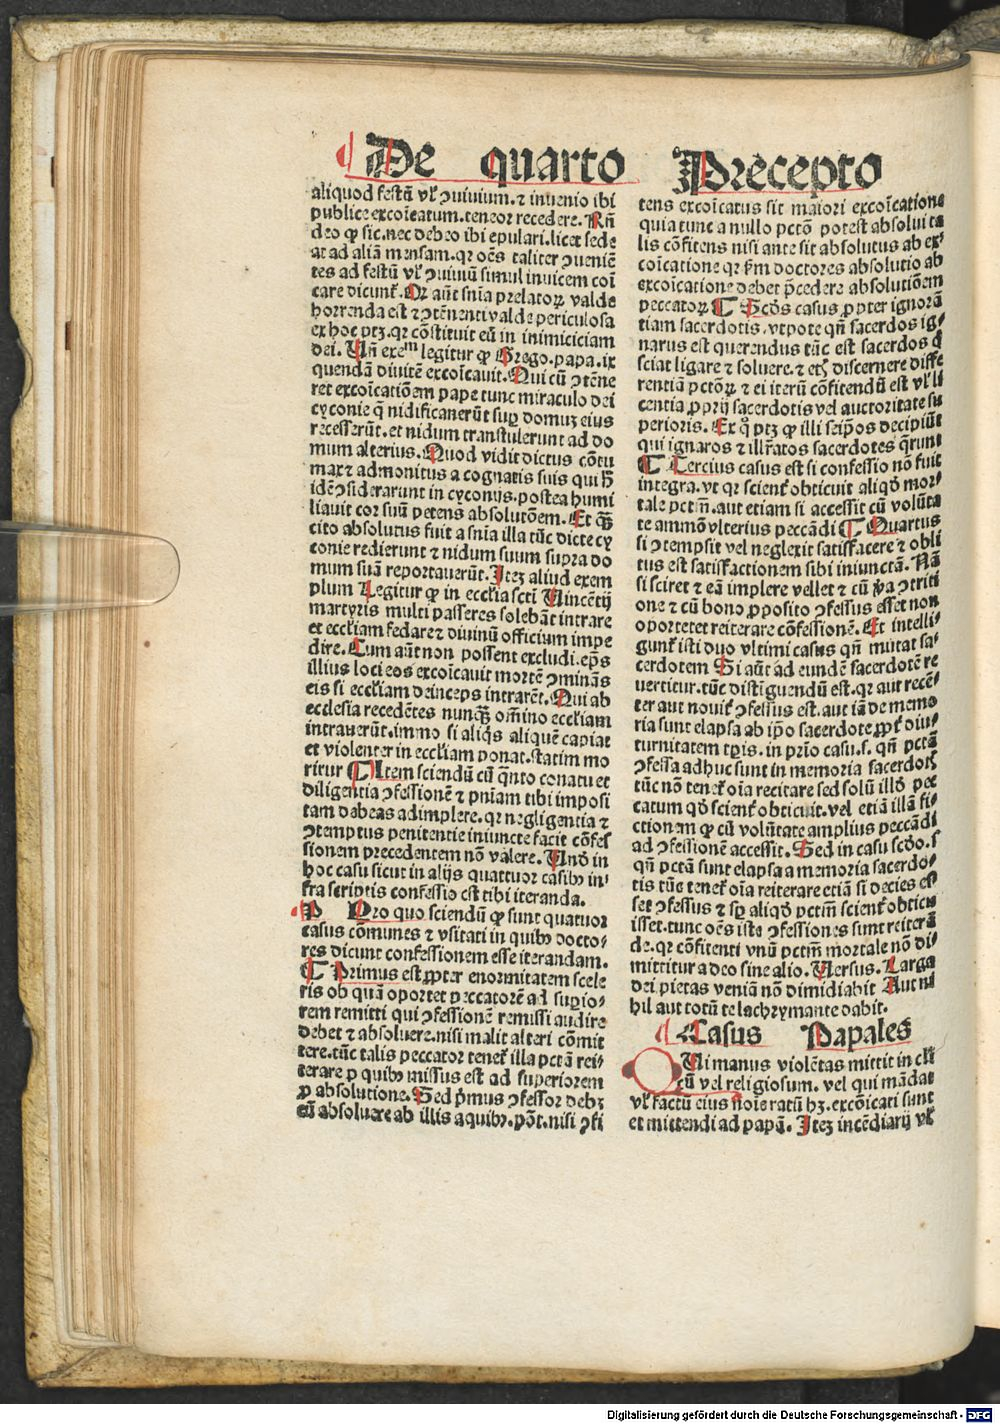 De quarto Precepto
aliquod festū vl' ꝯuiuium. ⁊ inuenio ibi
publice excoīcatum. teneor recedere. Rn̄
deo ꝙ sic. nec debeo ibi epulari. licet sede
at ad aliā mensam. qꝛ oēs taliter ꝯueniē
tes ad festū vl' ꝯuiuiū simul inuicem coī
care dicunt'. Qꝛ aūt snīa prelatoꝝ valde
horrenda est ⁊ ꝯtēnenti valde periculosa
ex hoc ptꝫ. qꝛ cōstituit eū in inimiciciam
dei. Vn̄ exeᵐ legitur ꝙ Grego. papa. ix
quendā diuitē excoīcauit. Qui cū ꝯtēne
ret excoīcatiōem pape tunc miraculo dei
cyconie q̄ nidificanerūt sup domuꝫ eius
recesserūt. et nidum transtulerunt ad do
mum alterius. Quod vidit dictus cōtu
max ⁊ admonitus a cognatis suis qui h̄
idē ꝯsiderarunt in cyconijs. postea humi
liauit cor suū petens absolutōem. Et qꝫ̄
cito absolutus fuit a snīa illa tūc dicte cy
conie redierunt ⁊ nidum suum supra do
mum suā reportauerūt. Iteꝫ aliud exem
plum Legitur ꝙ in eccl'ia scti Vincētij
martyris multi passeres solebāt intrare
et eccl'iam fedare ⁊ diuinū officium impe
dire. Cum aūt non possent excludi. ep̄s
illius loci eos excoīcauit mortē ꝯminās
eis si eccl'iam deinceps intrarēt. Qui ab
ecclesia recedētes nunqꝫ̄ om̄ino eccl'iam
intrauerūt. immo si aliq̄s aliquē capiat
et violenter in eccl'iam ponat. statim mo
ritur ¶ Item sciendū cū q̄nto conatu et
diligentia ꝯfessionē ⁊ pn̄iam tibi imposi
tam debeas adimplere. qꝛ negligentia ⁊
ꝯtemptus penitentie iniuncte facit cōfes
sionem precedentem nō valere. Vn̄ in
hoc casu sicut in alijs quattuor casibꝰ in/
fra scriptis confessio est tibi iteranda.
Pro quo sciendū ꝙ sunt quatuor
casus cōmunes ⁊ vsitati in quibꝰ docto/
res dicunt confessionem esse iterandam.
¶ Primus est ꝓpter enormitatem scele
ris ob quā oportet peccatorē ad supio/
rem remitti qui ꝯfessionē remissi audire
debet ⁊ absoluere. nisi malit alteri cōmit
tere. tūc talis peccator tenet' illa pctā rei/
terare ꝓ quibꝰ missus est ad superiorem
ꝓ absolutione. Sed p̄mus ꝯfessor debꝫ
eū absoluere ab illis a quibꝰ. pōt. nisi ꝯfi
tens excoīcatus sit maiori excoīcatione
quia tunc a nullo pctō potest absolui ta
lis cōfitens nisi ante sit absolutus ab ex/
coīcatione qꝛ ẜm doctores absolutio ab
excoīcatione debet p̄cedere absolutiōem
peccatoꝝ ¶ Scd̄s casus ꝓpter ignorā
tiam sacerdotis. vtpote qn̄ sacerdos ig/
narus est querendus tūc est sacerdos q̄
sciat ligare ⁊ soluere. ⁊ etꝫ discernere diffe
rentiā pctōꝝ. ⁊ ei iterū cōfitendū est vl' li
centia ꝓprij sacerdotis vel auctoritate su
perioris. Ex q̊ ptꝫ ꝙ illi seip̄os decipiūt
qui ignaros ⁊ ill'ratos sacerdotes q̄runt
¶ Tercius casus est si confessio nō fuit
integra. vt qꝛ scient' obticuit aliqd̄ mor/
tale pctm̄. aut etiam si accessit cū volūta
te ammōn vlterius peccādi ¶ Quartus
si ꝯtempsit vel neglexit satisfacere ⁊ obli
tus est satisfactionem sibi iniunctā. Nā
si sciret ⁊ eā implere vellet ⁊ cū v̄a ꝯtriti
one ⁊ cū bono ꝓposito ꝯfessus esset non
oportetet reiterare cōfessionē. Et intelli/
gunt' isti duo vltimi casus qn̄ mutat sa/
cerdotem Si aūt ad eundē sacerdotē re
uertitur. tūc distīguendū est. qꝛ aut recē/
ter aut nouit' ꝯfessus est. aut iā de memo
ria sunt elapsa ab ip̄o sacerdote ꝓpt' diu/
turnitatem tp̄is. in prīo casu. s. qn̄ pctā
ꝯfessa adhuc sunt in memoria sacerdot'
tūc nō tenet' oīa recitare sed solū illd̄ pec
catum qd̄ scient' obticuit. vel etiā illā fi/
ctionem ꝙ cū volūtate amplius peccādi
ad ꝯfessionē accessit. Sed in casu scd̄o. s
qn̄ pctā sunt elapsa a memoria sacerdo/
tis tūc tenet' oīa reiterare etiā si decies es
set ꝯfessus ⁊ sp̄ aliqd̄ pctm̄ scient' obticu
isset. tunc oēs iste ꝯfessiones sunt reiterā
de. qꝛ cōfitenti vnū pctm̄ mortale nō di/
mittitur a deo sine alio. Versus. Larga
dei pietas veniā nō dimidiabit Aut ni
hil aut totū te lachrymante dabit.
Casus Papales
QVi manus violētas mittit in cl'i
cū vel religiosum. vel qui mādat
vl' factū eius noīe ratū hꝫ. excōicati sunt
et mittendi ad papā. Iteꝫ incēdiarij vl'
Digitalisierung gefördert durch die Deutsche Forschungsgemeinschaft - DFG